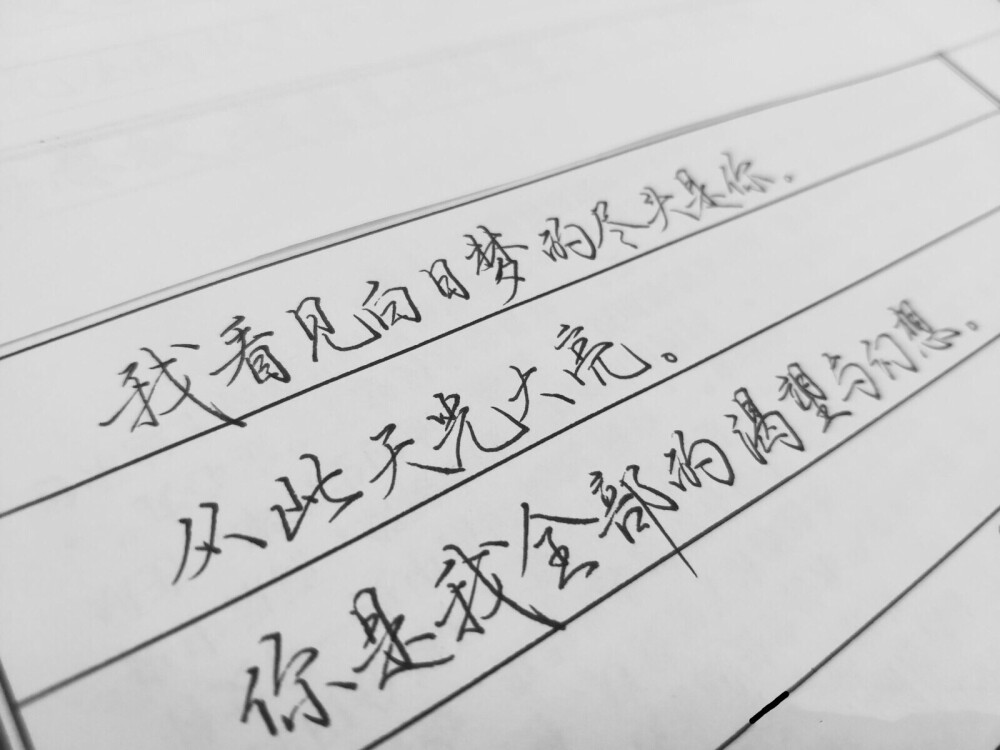 我看见向日梦的尽头是你。
从此天光大亮。
你是我全部的渴望与幻想。